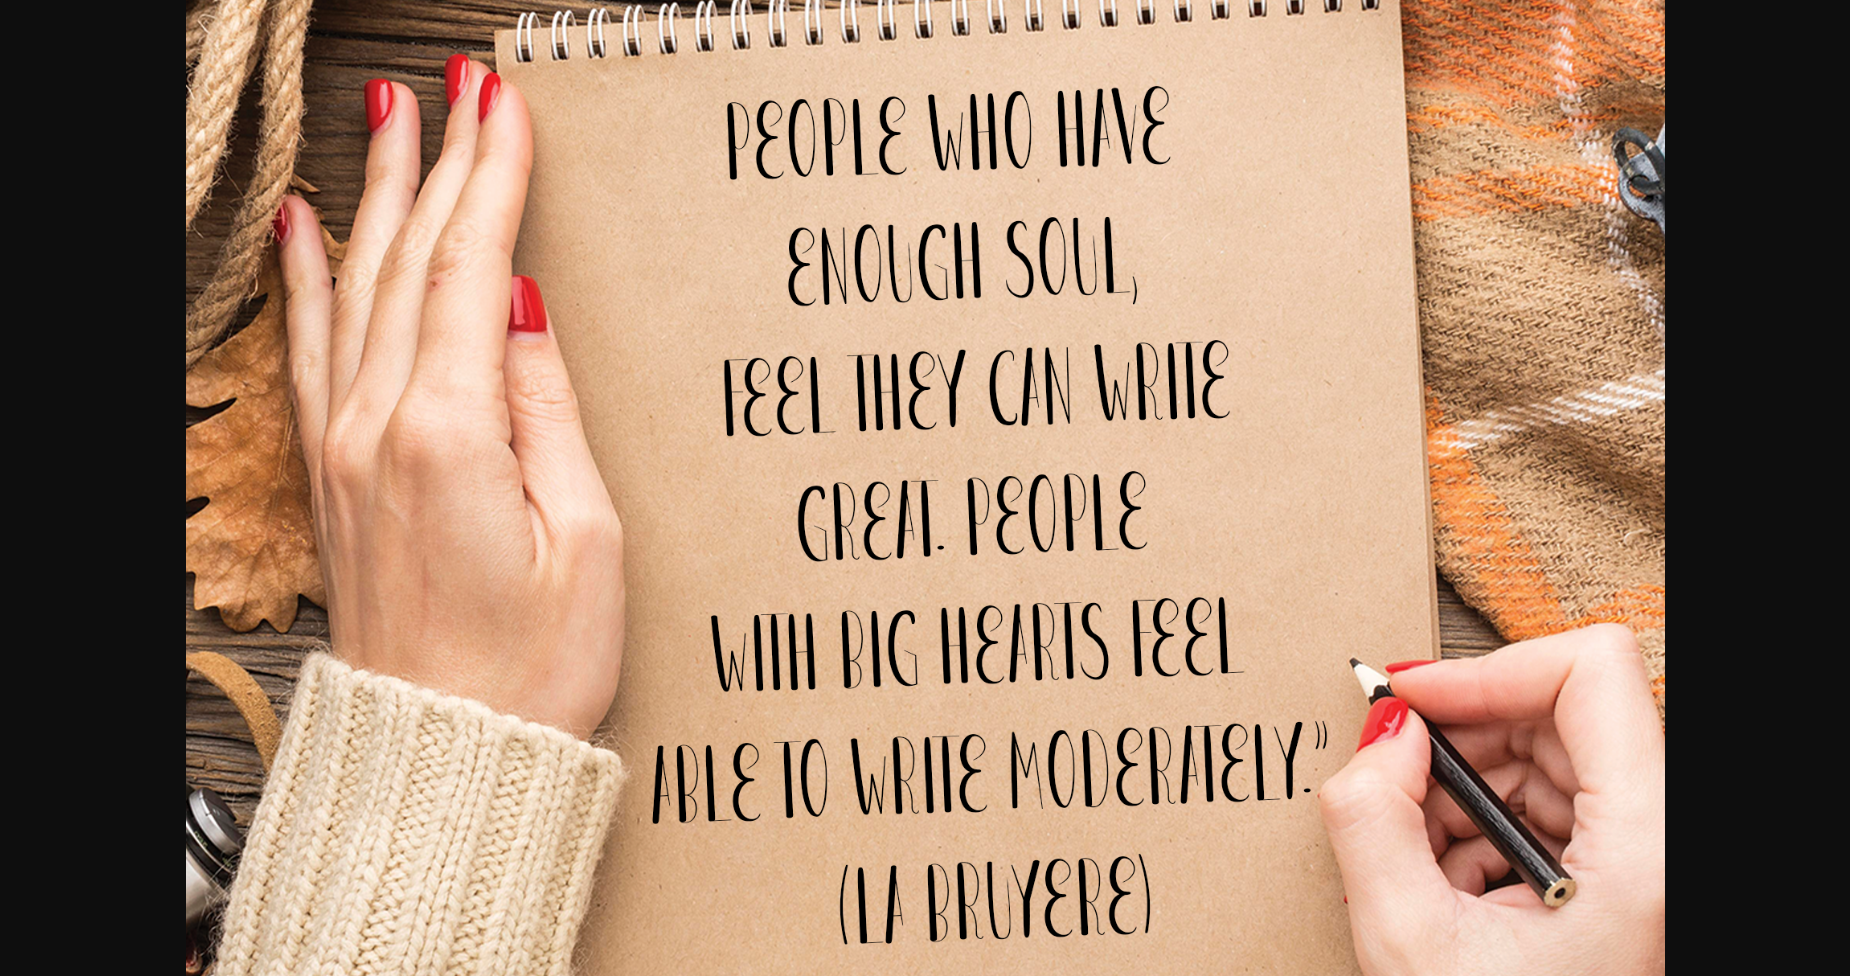 PEOPLE WHO HAVE
ENOUGH SOUL,
FEEL THEY CAN WRITE
GREAT. PEOPLE
WITH BIG HEARTS FEEL
ABLE TO WRITE MODERATELY.”
(LA BRUYERE)